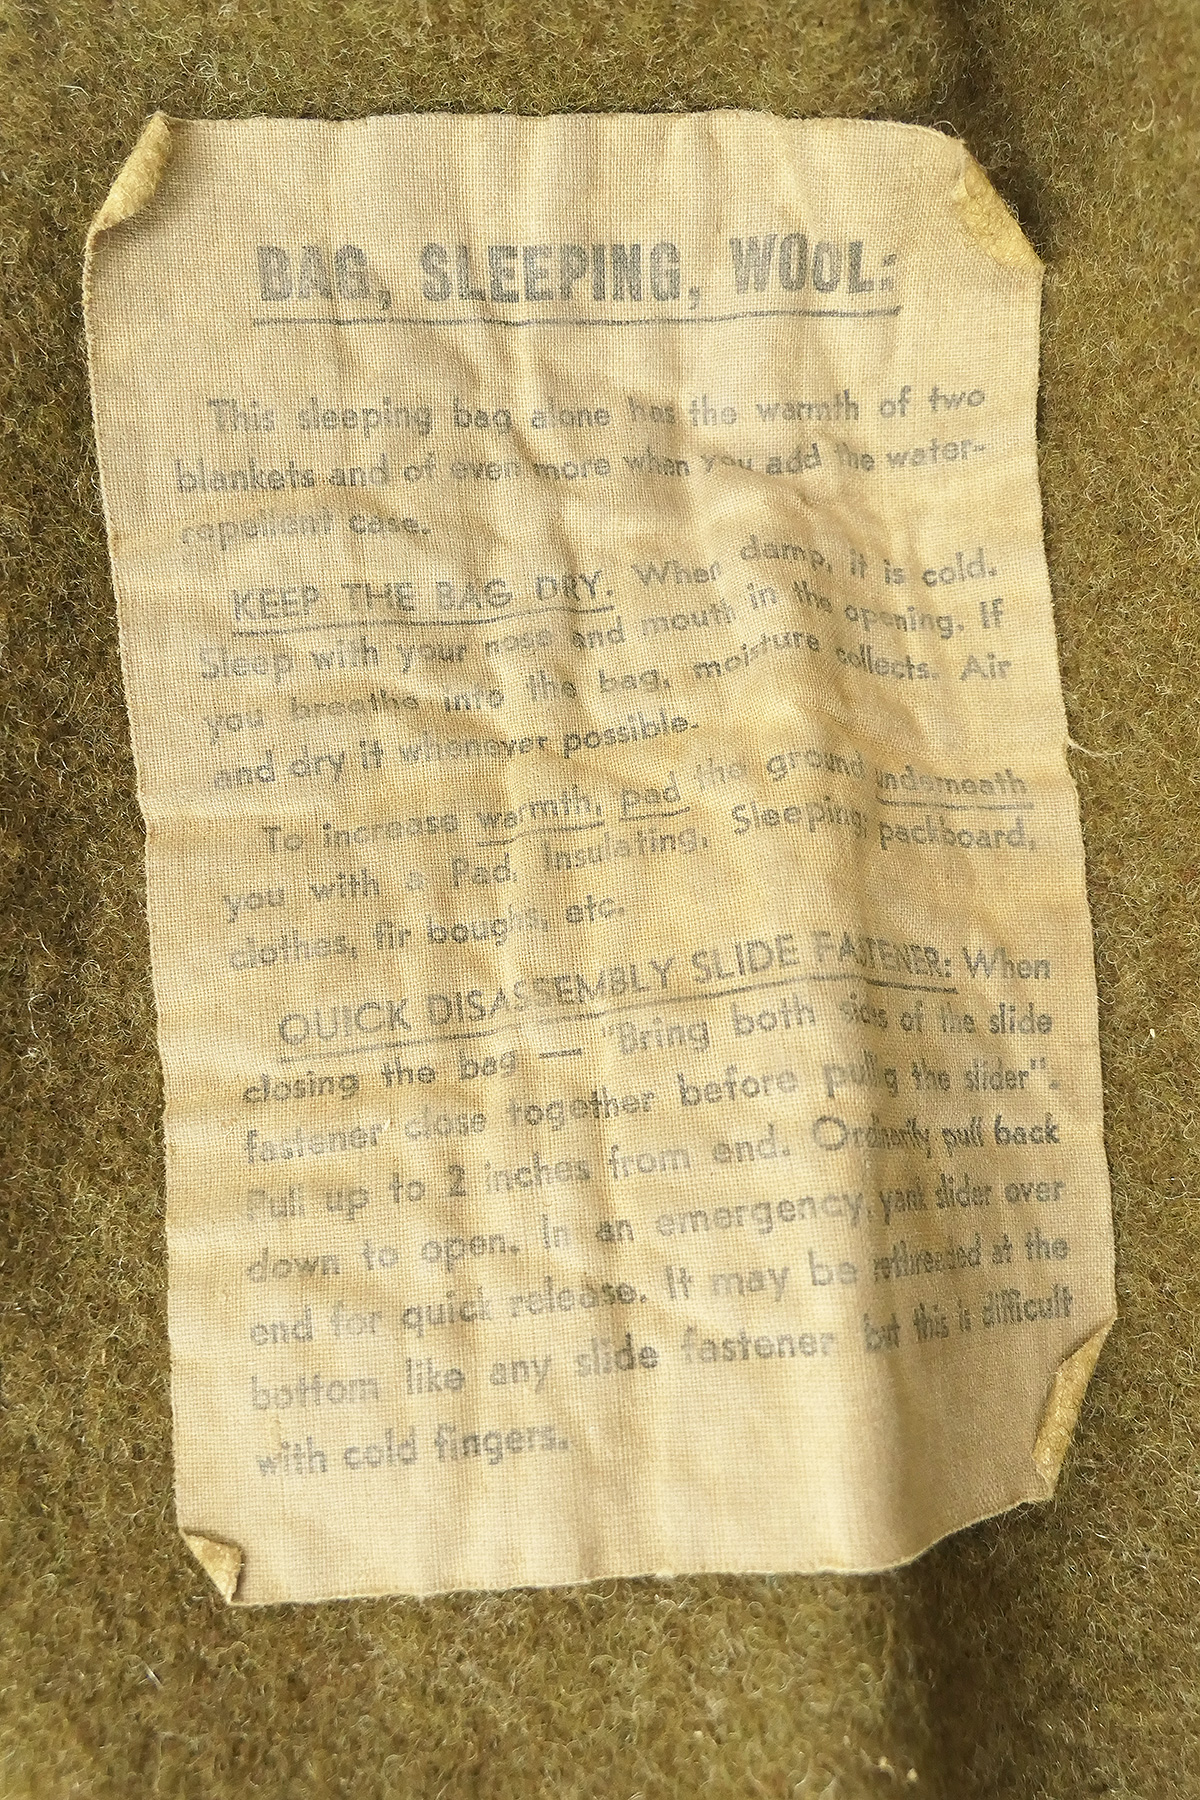 BAG, SLEEPING, WOOL:
This sleeping bag alone has the warmth of two
blankets and of even more when you add the water-
repellent case.
KEEP THE BAG DRY. When damp, it is cold.
Sleep with your nose and mouth in the opening. If
you breathe into the bag, moisture collects. Air
and dry it whenever possible.
To increase warmth, pad the ground underneath
you with a Pad, Insulating, Sleeping; packboard,
clothes, fir boughs, etc.
QUICK DISASSEMBLY SLIDE FASTENER: When
closing the bag — "Bring both sides of the slide
fastener close together before pulling the slider".
Pull up to 2 inches from end. Ordinarily pull back
down to open. In an emergency, yank slider over
end for quick release. It may be rethreaded at the
bottom like any slide fastener but this is difficult
with cold fingers.